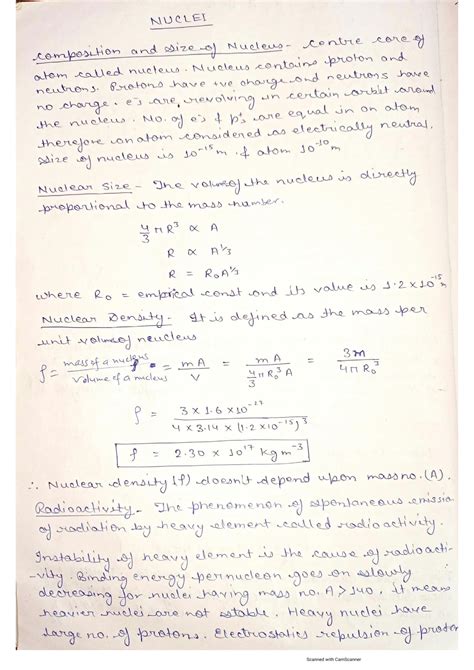 NUCLEI
Composition and size of Nucleus - Centre core of
atom called nucleus. Nucleus contains proton and
neutrons. Protons have +ve charge and neutrons have
no charge. e's are revolving in certain orbit around
the nucleus. No. of e's & p's are equal in an atom
therefore an atom considered as electrically neutral.
Size of nucleus is 10⁻¹⁵ m & atom 10⁻¹⁰ m
Nuclear Size - The volume of the nucleus is directly
proportional to the mass number.
4/3 πR³ ∝ A
R ∝ A^1/3
R = R₀A^1/3
where R₀ = empirical const and its value is 1.2 × 10⁻¹⁵ m
Nuclear Density - It is defined as the mass per
unit volume of neucleus
ρ = mass of a nucleus / volume of a nucleus = mA / V = mA / 4/3 πR₀³ A = 3m / 4πR₀³
ρ = 3 × 1.6 × 10⁻²⁷ / 4 × 3.14 × (1.2 × 10⁻¹⁵)³
ρ = 2.30 × 10¹⁷ kg m⁻³
∴ Nuclear density (ρ) doesn't depend upon mass no. (A).
Radioactivity - The phenomenon of spontaneous emission
of radiation by heavy element called radioactivity.
Instability of heavy element is the cause of radioacti-
-vity. Binding energy per nucleon goes on slowly
decreasing for nuclei having mass no. A > 140. It means
heavier nuclei are not stable. Heavy nuclei have
large no. of protons. Electrostatics repulsion of proton
Scanned with CamScanner